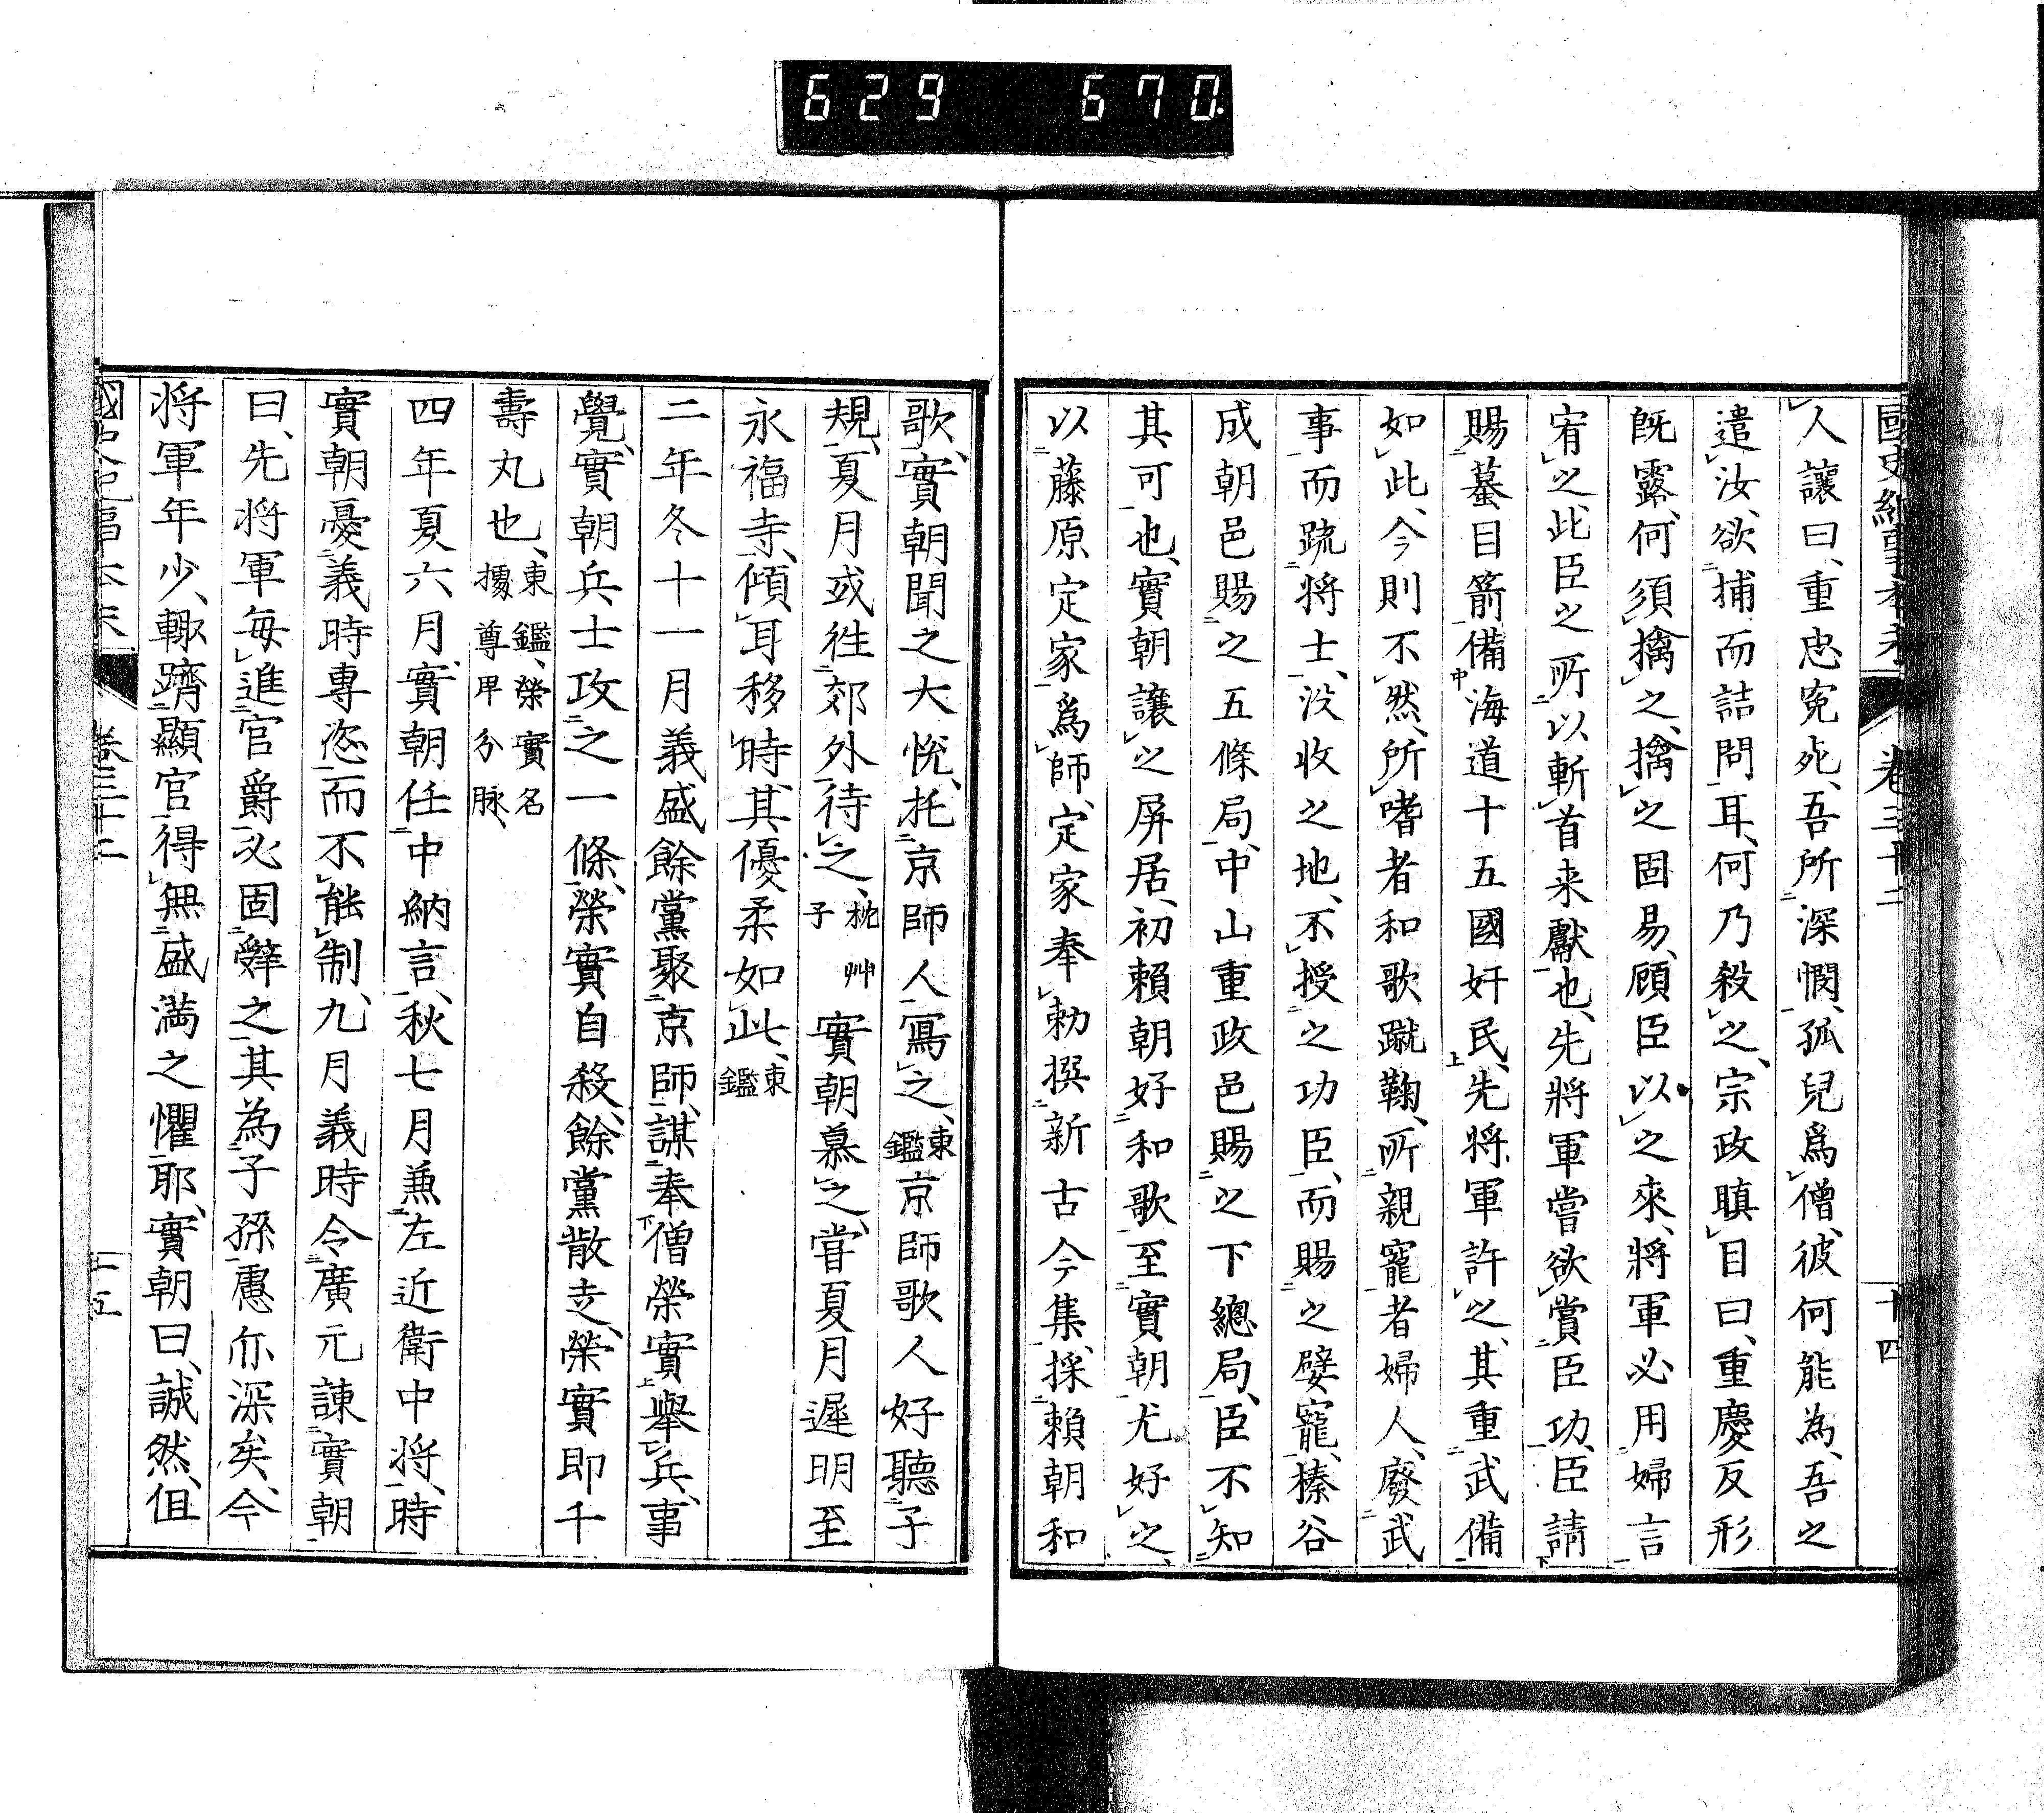 629 670
國史紀事本末 卷三十二 十四
人讓曰、重忠寃死、吾所深憫、孤兒爲僧、彼何能為、吾之
遣汝、欲捕而詰問耳、何乃殺之、宗政瞋目曰、重慶反形
既露、何須擒之、擒之固易、顧臣以之來、將軍必用婦言
宥之、此臣之所以斬首来獻也、先將軍嘗欲賞臣功、臣請
賜蟇目箭備海道十五國奸民、先將軍許之、其重武備
如此、今則不然、所嗜者和歌蹴鞠、所親寵者婦人、廢武
事而疏将士、没收之地、不授之功臣、而賜之嬖寵、榛谷
成朝邑賜之五條局、中山重政邑賜之下總局、臣不知
其可也、實朝讓之屏居、初賴朝好和歌至實朝尤好之、
以藤原定家爲師、定家奉勅撰新古今集、採賴朝和
歌、實朝聞之大悅、托京師人寫之、東鑑京師歌人好聽子
規、夏月或徃郊外待之、枕艸子實朝慕之、甞夏月遲明至
永福寺、傾耳移時、其優柔如此、東鑑
二年冬十一月義盛餘黨聚京師、謀奉僧榮實舉兵、事
覺、實朝兵士攻之一條、榮實自殺、餘黨散走、榮實即千
壽丸也、東鑑、榮實名據尊卑分脉、
四年夏六月、實朝任中納言、秋七月兼左近衛中将、時
實朝憂義時專恣而不能制、九月義時令廣元諫實朝
曰、先将軍每進官爵必固辭之、其為子孫慮亦深矣、今
将軍年少、輙躋顯官、得無盛満之懼耶、實朝曰、誠然、伹
國史紀事本末 卷三十二 十五